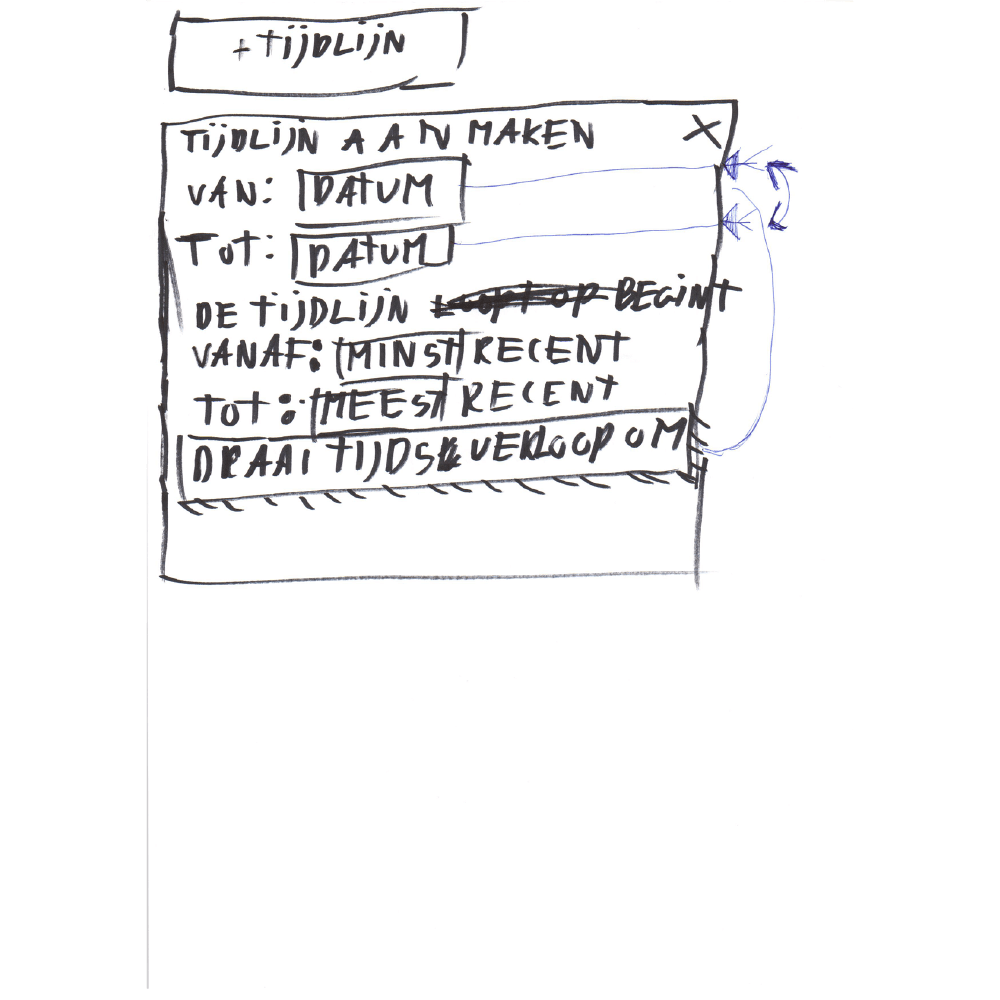 + TIJDLIJN
TIJDLIJN AAN MAKEN X
VAN: DATUM
TOT: DATUM
DE TIJDLIJN LOOPT OP BEGINT
VANAF: MINST RECENT
TOT: MEEST RECENT
DRAAI TIJDSVERLOOP OM